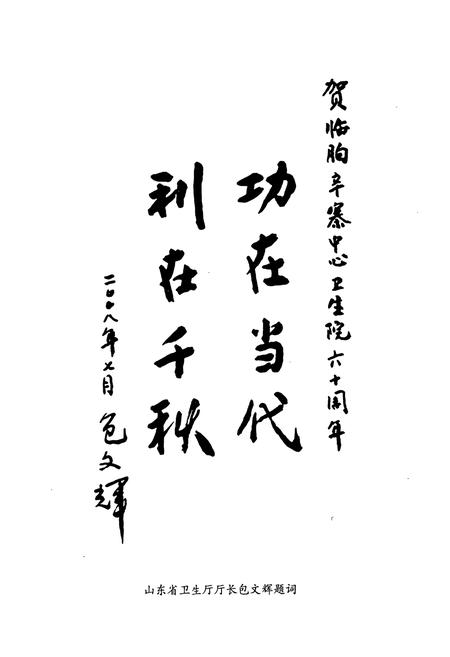 贺临朐辛寨中心卫生院六十周年
功在当代
利在千秋
二〇〇八年七月 包文辉
山东省卫生厅厅长包文辉题词